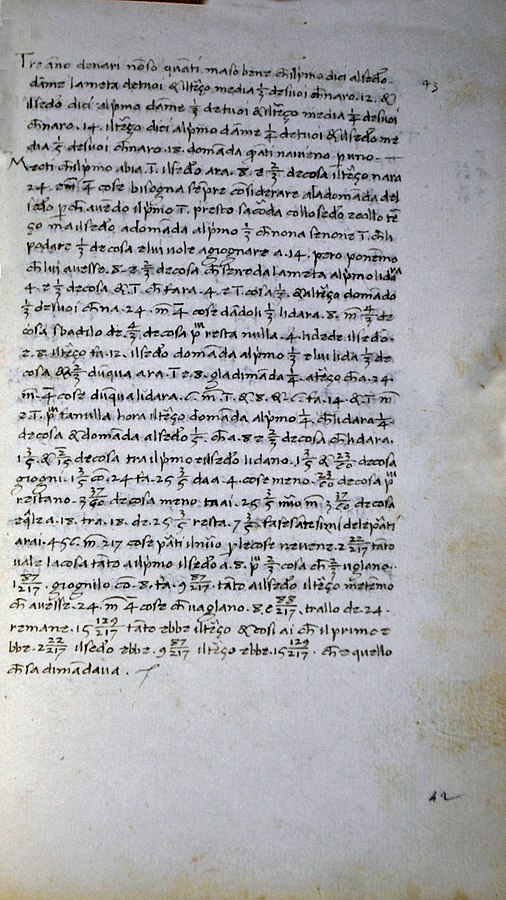 Tre ano denari nonso quāti maso bene ch̄ ilpmo dici alsedo.
dāme lametà detuoi & iltēço media 1/3 desuoi ch̄naro .12. &
ilsedo dici alpmo dāme 1/3 detuoi & iltēço media 1/4 desuoi
ch̄naro .14. iltēço dici alpmo dāme 1/4 detuoi & ilsedo me
dia 1/5 desuoi ch̄naro .18. domāda q̄ati naveno p uno.
Meti ch̄ ilpmo abia ī. ilsedo ara .8. e 2/3 de cosa iltēço nara
24. e m̄ 4̄ cose bisogna sēpre considerare ala domāda del
sedo p ch̄ avēdo ilpmo ī. presto sacōda collo sedo e collo tē
ço m̄a ilsedo adomāda alpmo 1/3 ch̄ nona senone ī. ch̄ li
podare 1/3 de cosa e lui vole agiognare a .14. pero ponemo
ch̄ lui avesse .8. e 2/3 de cosa ch̄ senroda lametà alpmo lida
4. e 1/3 de cosa & ī. ch̄ fara .4. e ī cosa 1/3 & iltēço domādo
1/3 desuoi ch̄ na .24. m̄ 4̄ cose dādoli 1/3 lidara .8. m̄ 4/3 de
cosa sbatilo de 4/3 de cosa pm resta nulla .4. lidede ilsedo.
e .8. iltēço fa .12. ilsedo domāda alpmo 1/3 e lui lida 1/3 de
cosa & 2/3 duqua ara ī e 8. gla dimāda 1/4 atēço ch̄a .24.
m̄ 4̄ cose duqua lidara .6 m̄ ī. & .8. & 6. fa .14. & ī m̄
e ī. pm fanulla hora iltēço domāda alpmo 1/4. ch̄ lidara 1/4.
de cosa & domāda alsedo 1/5. ch̄a .8 e 2/3 de cosa ch̄ lidara.
1 3/5. & 2/15 de cosa tra ilpmo e ilsedo lidano .1 3/5 & 23/60 de cosa
giogni .1 3/5 cō .24 fa .25 3/5 daa .4. cose meno. 23/60 de cosa pm
restano .3 37/60 de cosa meno traai .25 3/5 nūo m̄ 3 37/60 de cosa
eq̄le a .18. tra .18. de .25 3/5 resta .7 3/5. fa sesātesimi dele parti
arai .456. m̄ 217 cose pāti ilnūo p lecose ne vene .2 22/217 tāto
vale la cosa tāto a ilpmo ilsedo a .8. pm 2/3 cosa ch̄ 2/3 vgliano.
1 87/217. giognilo cō .8. fa .9 87/217. tāto a ilsedo iltēço metemo
ch̄ avesse .24. m̄ 4̄ cose ch̄ vagliano .8. e 88/217. trallo de .24.
remane .15 129/217 tāto ebbe iltēço & cosi ai ch̄ il primo e
bbe .2 22/217 ilsedo ebbe .9 87/217 iltēço ebbe .15 129/217. ch̄ e quello
ch̄ sa dimādava.
43
42